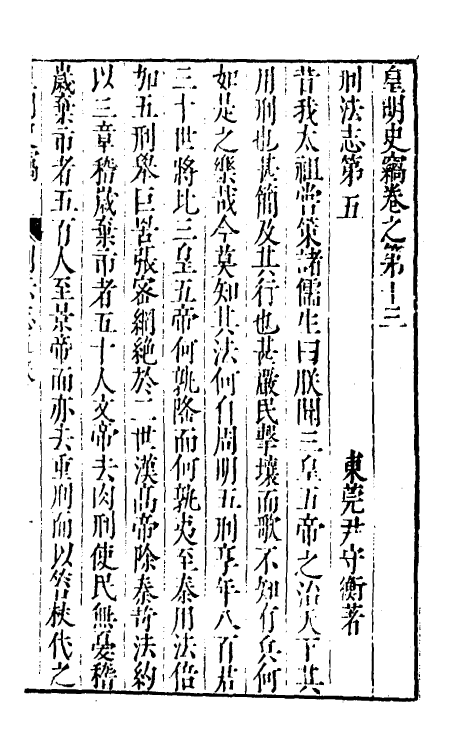 皇明史竊卷之第十三
刑法志第五　東莞尹守衡著
昔我太祖嘗策諸儒生曰朕聞三皇五帝之治天下其
用刑也甚簡及其行也甚嚴民擊壤而歌不知有兵何
如是之樂哉今莫知其法何自周明五刑享年八百君
三十世將比三皇五帝何孰隆而何孰夷至秦用法倍
加五刑舉巨笞張密網絕於二世漢高帝除秦苛法約
以三章稽歲棄市者五十人文帝去肉刑使民無憂稽
歲棄市者五百人至景帝而亦去重刑而以笞杖代之